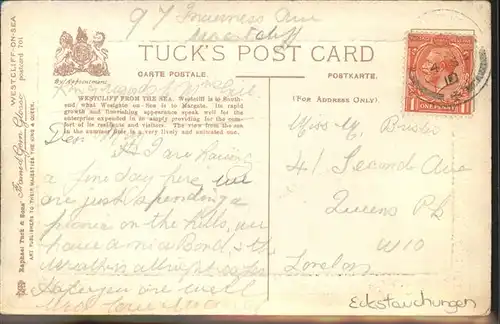 97 Inverness Ave
Westcliff
WESTCLIFF-ON-SEA
postcard 701
TUCK'S POST CARD
By Appointment
CARTE POSTALE.
POSTKARTE.
(FOR ADDRESS ONLY.)
Raphael Tuck & Sons' "Framed Gem Glosso"
ART PUBLISHERS TO THEIR MAJESTIES THE KING & QUEEN.
WESTCLIFF FROM THE SEA. Westcliff is to South-
end what Westgate on-Sea is to Margate. Its rapid
growth and flourishing appearance speak well for the
enterprise expended in so amply providing for the com-
fort of its residents and visitors. The view from the sea
in the summer time is a very lively and animated one.
Dear
I are having
a fine day here we
are just spending a
on the hills, we
have a nice Band, & the
Weather is alright
you are well
ONE PENNY
Miss M.
41 Second Ave
Queens Pk
W10
London
Eckstauchungen